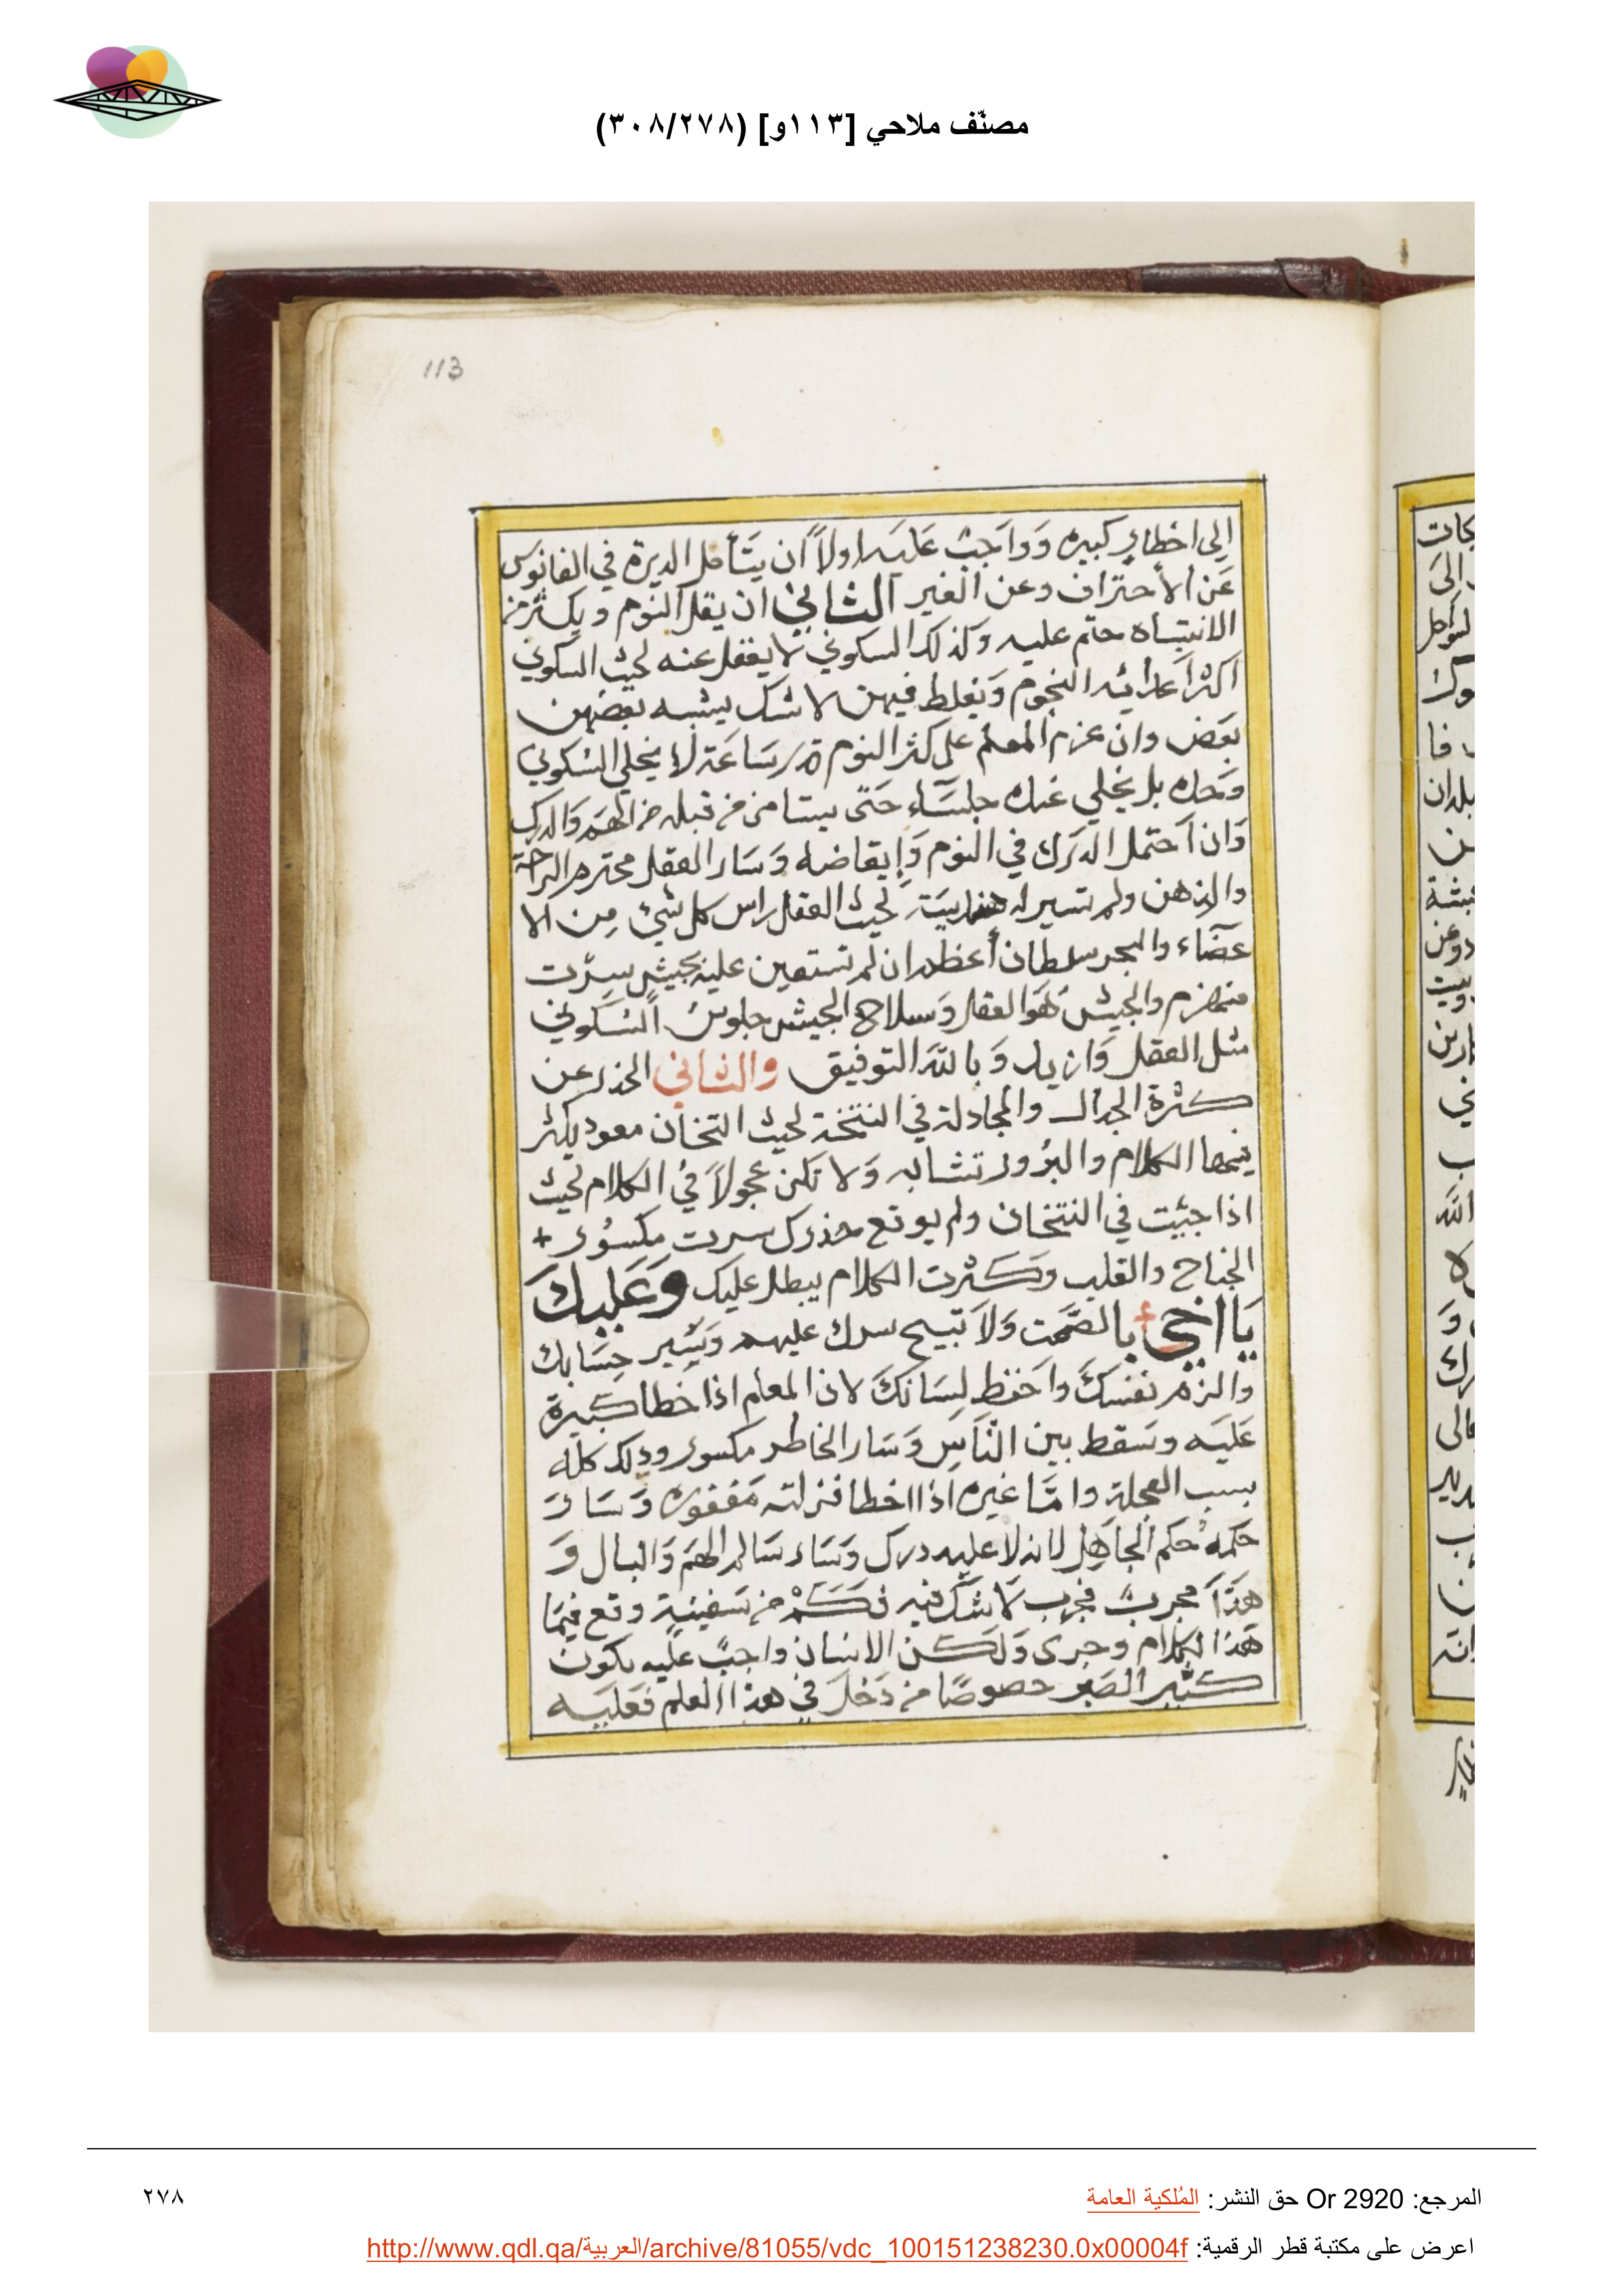 مصنّف ملاحي [١١٣و] (٣٠٨/٢٧٨)
113
الى اخطار كبيره وواجب عليه اولاً ان يتأمل الديرة في الفانوس
عن الأحتراف وعن الغير الثاني ان يقل النوم ويكثر من
الانتباه حتم عليه وكذلك السكوني لا يغفل عنه لحيث السكوني
اكثر النجوم ويغلط فيهن لاشك يشبه بعضهن
بعض وان عزم المعلم على كثر النوم قدر ساعة لا يخلي السكوني
وحده بل يخلي عنده جلساء حتى يستامن من قبله من الهم والدرك
وان احتمل الدرك في النوم وإيقاضه وسار العقل محترم الراحة
والذهن ولم تسير له لحيث العقل راس كل شي من الا
عضاء والبحر سلطان أعظم ان لم تستعين عليه بجيش سرت
منهزم والجيش هو العقل وسلاح الجيش جلوس السكوني
مثل العقل وازيد وبالله التوفيق والثاني الحذر عن
كثرة الجدال والمجادلة في النتخة لحيث النتخان معود يكثر
فيها الكلام والبرور تتشابه ولا تكن عجولاً في الكلام لحيث
اذا جئيت في النتخان ولم يوقع حذرك سرت مكسور +
الجناح والقلب وكثرت الكلام يبطل عليك وعليك
يا اخي بالصمت ولا تبيح سرك عليهم ويسير حسابك
والزم نفسك واحفظ لسانك لان المعلم اذا خطا كبيرة
عليه وسقط بين الناس وسار الخاطر مكسور وذلك كله
بسبب العجلة واما غيره اذا اخطا فزلته مغفوره وسار
حكمه حكم الجاهل لانه لا عليه درك وسار سالم الهم والبال و
هذا مجرب فجرب لا شك فيه فكم من سفينة وقع فيها
هذا الكلام وجرى ولكن الانسان واجب عليه يكون
كثير الصبر خصوصًا من دخل في هذا العلم فعليه
المرجع: Or 2920 حق النشر: المُلكية العامة
٢٧٨
اعرض على مكتبة قطر الرقمية: http://www.qdl.qa/العربية/archive/81055/vdc_100151238230.0x00004f